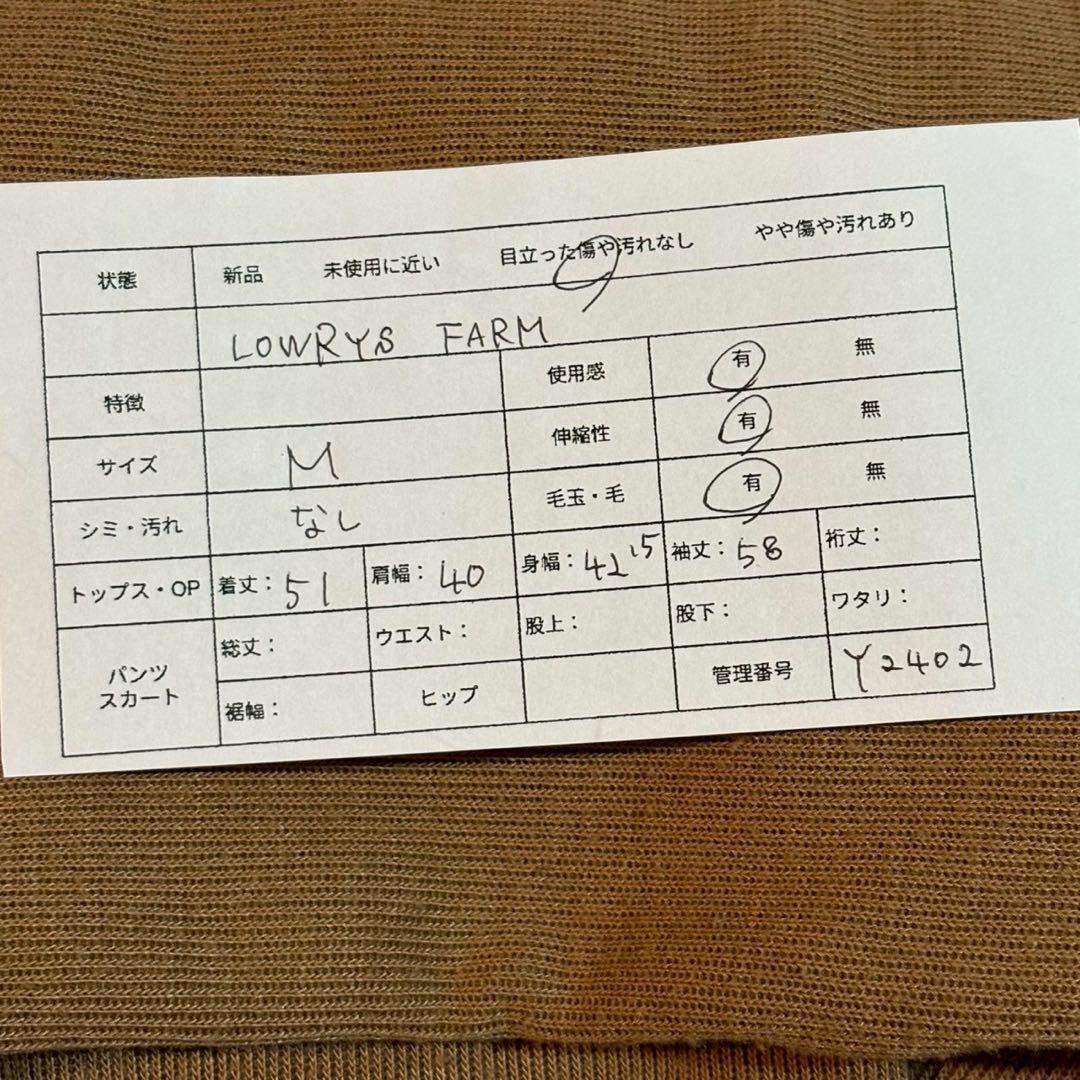 状態 新品 未使用に近い 目立った傷や汚れなし やや傷や汚れあり
LOWRYS FARM
特徴 使用感 有 無
サイズ M 伸縮性 有 無
シミ・汚れ なし 毛玉・毛 有 無
トップス・OP 着丈: 51 肩幅: 40 身幅: 42,5 袖丈: 58 裄丈:
パンツ スカート 総丈: ウエスト: 股上: 股下: ワタリ:
裾幅: ヒップ 管理番号 Y2402